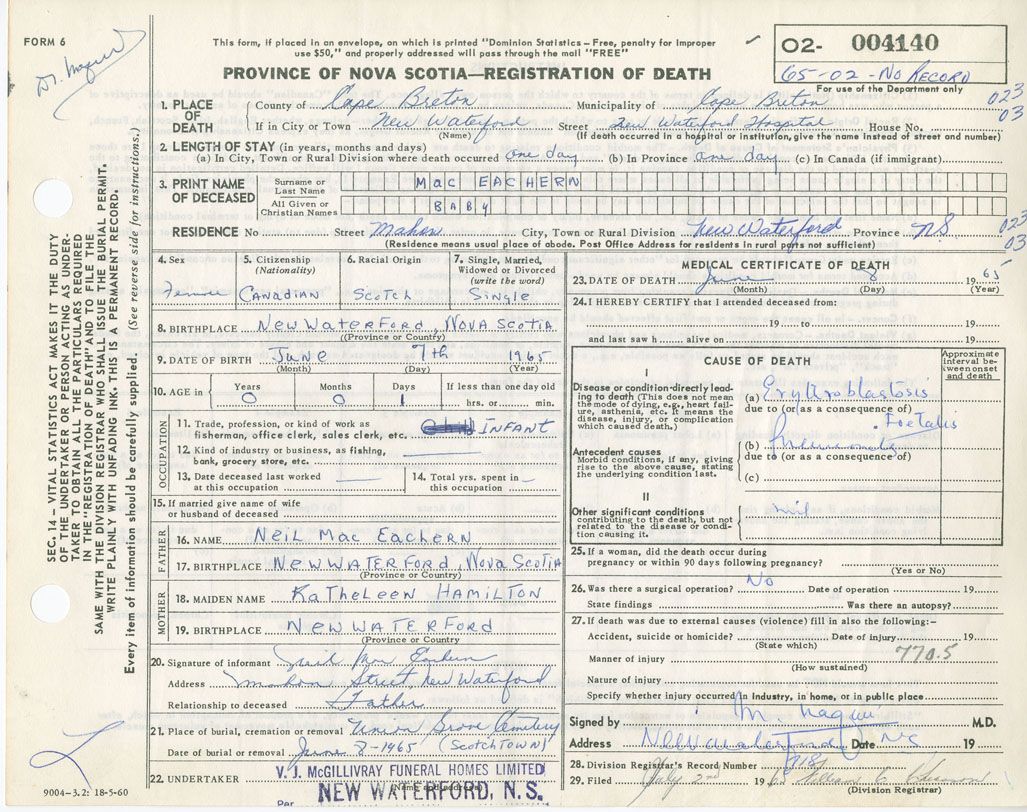 FORM 6
This form, if placed in an envelope, on which is printed "Dominion Statistics – Free, penalty for improper
use $50," and properly addressed will pass through the mail "FREE"
O2- 004140
65-02-No RECORD
For use of the Department only
PROVINCE OF NOVA SCOTIA—REGISTRATION OF DEATH
023
03
1. PLACE OF DEATH
County of Cape Breton Municipality of Cape Breton
If in City or Town New Waterford Street New Waterford Hospital House No.
(Name) (If death occurred in a hospital or institution, give the name instead of street and number)
2. LENGTH OF STAY (in years, months and days)
(a) In City, Town or Rural Division where death occurred one day (b) In Province one day (c) In Canada (if immigrant)
3. PRINT NAME OF DECEASED
Surname or Last Name Mac EACHERN
All Given or Christian Names BABY
RESIDENCE No Street Mahon City, Town or Rural Division New Waterford Province N.S.
(Residence means usual place of abode. Post Office Address for residents in rural parts not sufficient)
023
03
4. Sex
5. Citizenship (Nationality) Canadian
6. Racial Origin Scotch
7. Single, Married, Widowed or Divorced (write the word) Single
8. BIRTHPLACE New Waterford, Nova Scotia
(Province or Country)
9. DATE OF BIRTH June 7th 1965
(Month) (Day) (Year)
10. AGE in Years 0 Months 0 Days 1 If less than one day old hrs. or min.
OCCUPATION
11. Trade, profession, or kind of work as fisherman, office clerk, sales clerk, etc. INFANT
12. Kind of industry or business, as fishing, bank, grocery store, etc.
13. Date deceased last worked at this occupation
14. Total yrs. spent in this occupation
15. If married give name of wife or husband of deceased
FATHER
16. NAME Neil Mac Eachern
17. BIRTHPLACE New Waterford, Nova Scotia
(Province or Country)
MOTHER
18. MAIDEN NAME Katheleen Hamilton
19. BIRTHPLACE New Waterford
(Province or Country)
20. Signature of informant Neil Mac Eachern
Address Mahon Street, New Waterford
Relationship to deceased Father
21. Place of burial, cremation or removal Union Grove Cemetery
Date of burial or removal June 8-1965 (Scotchtown)
22. UNDERTAKER V. J. McGILLIVRAY FUNERAL HOMES LIMITED
(Name and address)
Per NEW WATERFORD, N. S.
9004-3.2: 18-5-60
MEDICAL CERTIFICATE OF DEATH
23. DATE OF DEATH June 8 1965
(Month) (Day) (Year)
24. I HEREBY CERTIFY that I attended deceased from:
19 to 19
and last saw h alive on 19
CAUSE OF DEATH
Approximate interval between onset and death
I
Disease or condition directly leading to death (This does not mean the mode of dying, e.g., heart failure, asthenia, etc. It means the disease, injury, or complication which caused death.)
(a) Erythroblastosis
due to (or as a consequence of)
Foetalis
Antecedent causes
Morbid conditions, if any, giving rise to the above cause, stating the underlying condition last.
(b)
due to (or as a consequence of)
(c)
II
Other significant conditions contributing to the death, but not related to the disease or condition causing it.
nil
25. If a woman, did the death occur during pregnancy or within 90 days following pregnancy?
(Yes or No)
26. Was there a surgical operation? No Date of operation 19
State findings Was there an autopsy?
27. If death was due to external causes (violence) fill in also the following:–
Accident, suicide or homicide? Date of injury 19
(State which)
770.5
Manner of injury
(How sustained)
Nature of injury
Specify whether injury occurred in industry, in home, or in public place
Signed by M. M.D.
Address New Waterford Date N.S. 19
28. Division Registrar's Record Number
29. Filed July 2nd 196 William
(Division Registrar)
SEC. 14 – VITAL STATISTICS ACT MAKES IT THE DUTY
OF THE UNDERTAKER OR PERSON ACTING AS UNDER-
TAKER TO OBTAIN ALL THE PARTICULARS REQUIRED
IN THE "REGISTRATION OF DEATH" AND TO FILE THE
SAME WITH THE DIVISION REGISTRAR WHO SHALL ISSUE THE BURIAL PERMIT.
WRITE PLAINLY WITH UNFADING INK. THIS IS A PERMANENT RECORD.
Every item of information should be carefully supplied. (See reverse side for instructions.)